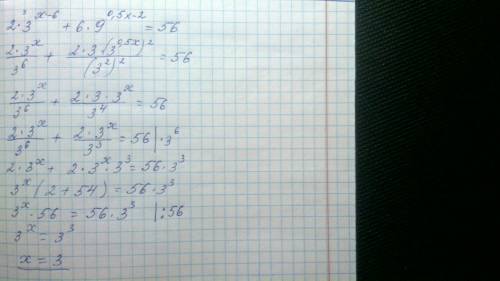 2·3^(x-6) + 6·9^(0,5x-2) = 56
(2·3^x)/(3^6) + (2·3·(3^(0,5x))^2)/((3^2)^2) = 56
(2·3^x)/(3^6) + (2·3·3^x)/(3^4) = 56
(2·3^x)/(3^6) + (2·3^x)/(3^3) = 56 |·3^6
2·3^x + 2·3^x·3^3 = 56·3^3
3^x(2+54) = 56·3^3
3^x·56 = 56·3^3 |:56
3^x = 3^3
x = 3